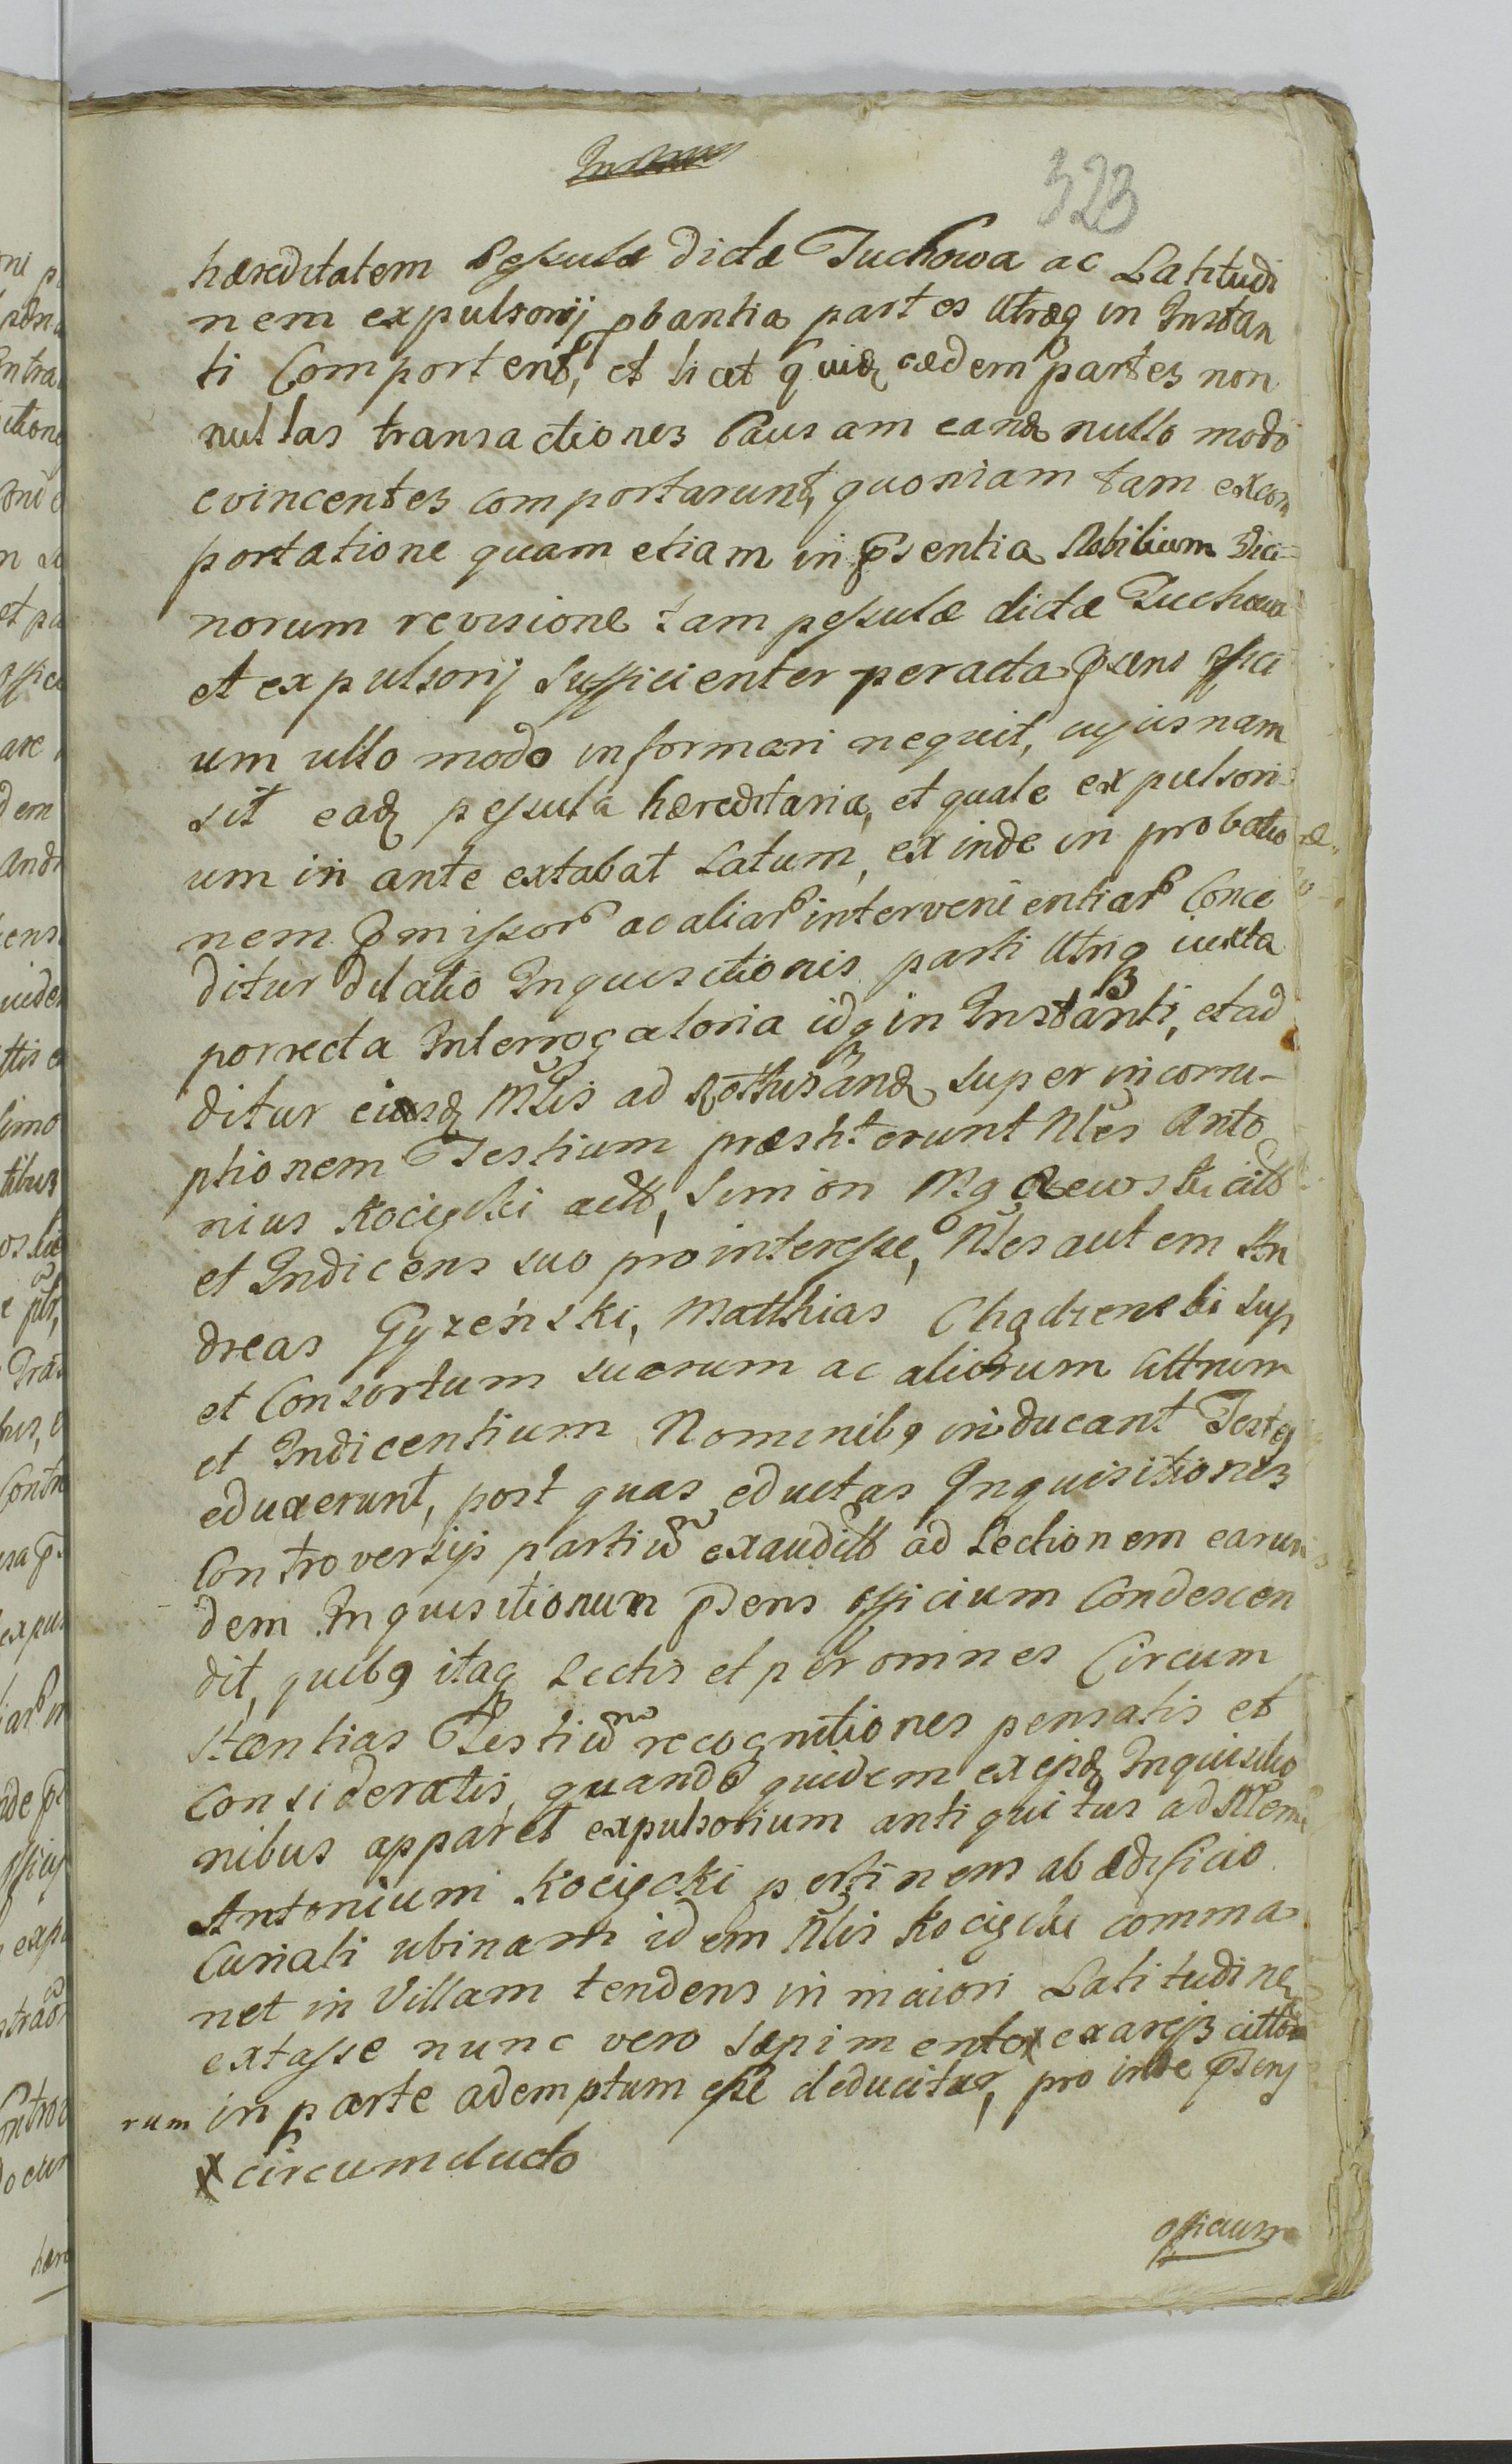 323
hæreditatem Pessulæ dictæ Tuchowa ac Latitudi
nem expulsorij pbantia partes utræq in Instan
ti Comportent, et licet quidē eædem partes non
nullas transactiones Causam eandē nullo modo
evincentes comportarunt, quoniam tam ex com
portatione quam etiam in pñsentia Nobilium Vici=
norum revisione tam pessulæ dictæ Tuchowa
et expulsorij Sufficienter peracta pñens offici
um ullo modo informari nequit, cujusnam
sit eadē pessula hæreditaria, et quale expulsori=
um in ante extabat Latum, ex inde in probatio
nem pmissorū ac aliarū intervenientiarū Conce
ditur dilatio Inquisitionis parti utriq iuxta
porrecta Interrogatoria idq in Instanti, et ad
ditur eiusdē Mlis ad super incorru-
ptionem Testium præstiterunt Nles Anto
nius Kocięcki actō, Simon citō
et Indicens suo pro interesse, Nles autem An
dreas Gyzeński, Matthias Chądzeński suo
et Consortum suarum ac aliorum Attrum
et Indicentium Nominibq inducant Testes
eduxerunt, post quas eductas Inquisitiones
Controversijs partiū exauditō ad Lectionem earun
dem Inquisitionum pñsens officium Condescen
dit, quibq itaq Lectis et per omnes Circum
stantias Testiū recognitiones pensatis et
Consideratis, quando quidem ex ejsdē Inquisitio
nibus apparet expulsorium antiquitus ad Nlem
Antonium Kocięcki pertinens ab ædificio
Curiali ubinam idem Nlis Kocięcki comma
net in Villam tendens in maiori Latitudine
extasse nunc vero sæpimento x ex arejs cittō
rum in parte ademptum esse deducitur, pro inde pñsens
x circumducto
officium